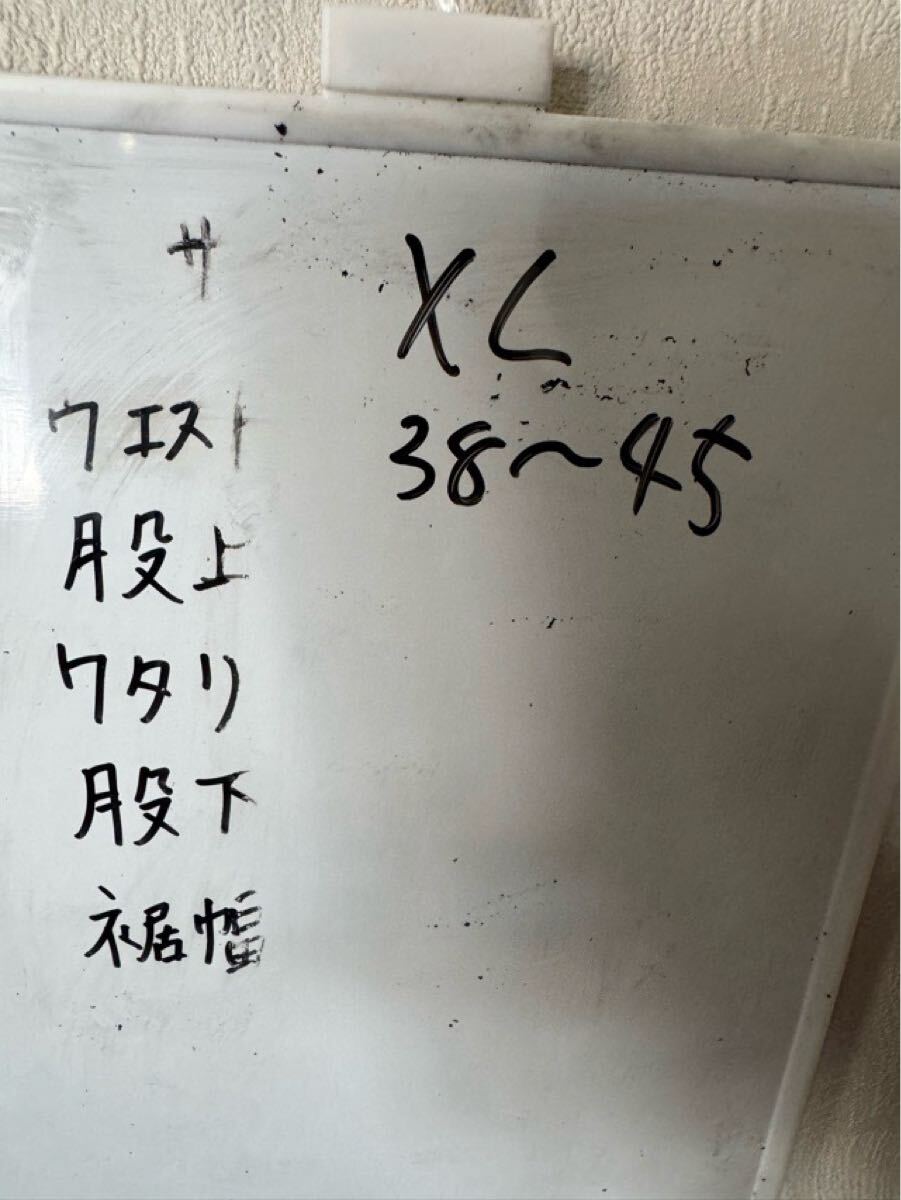 サ XL
ウエスト 38〜45
股上
ワタリ
股下
裾幅